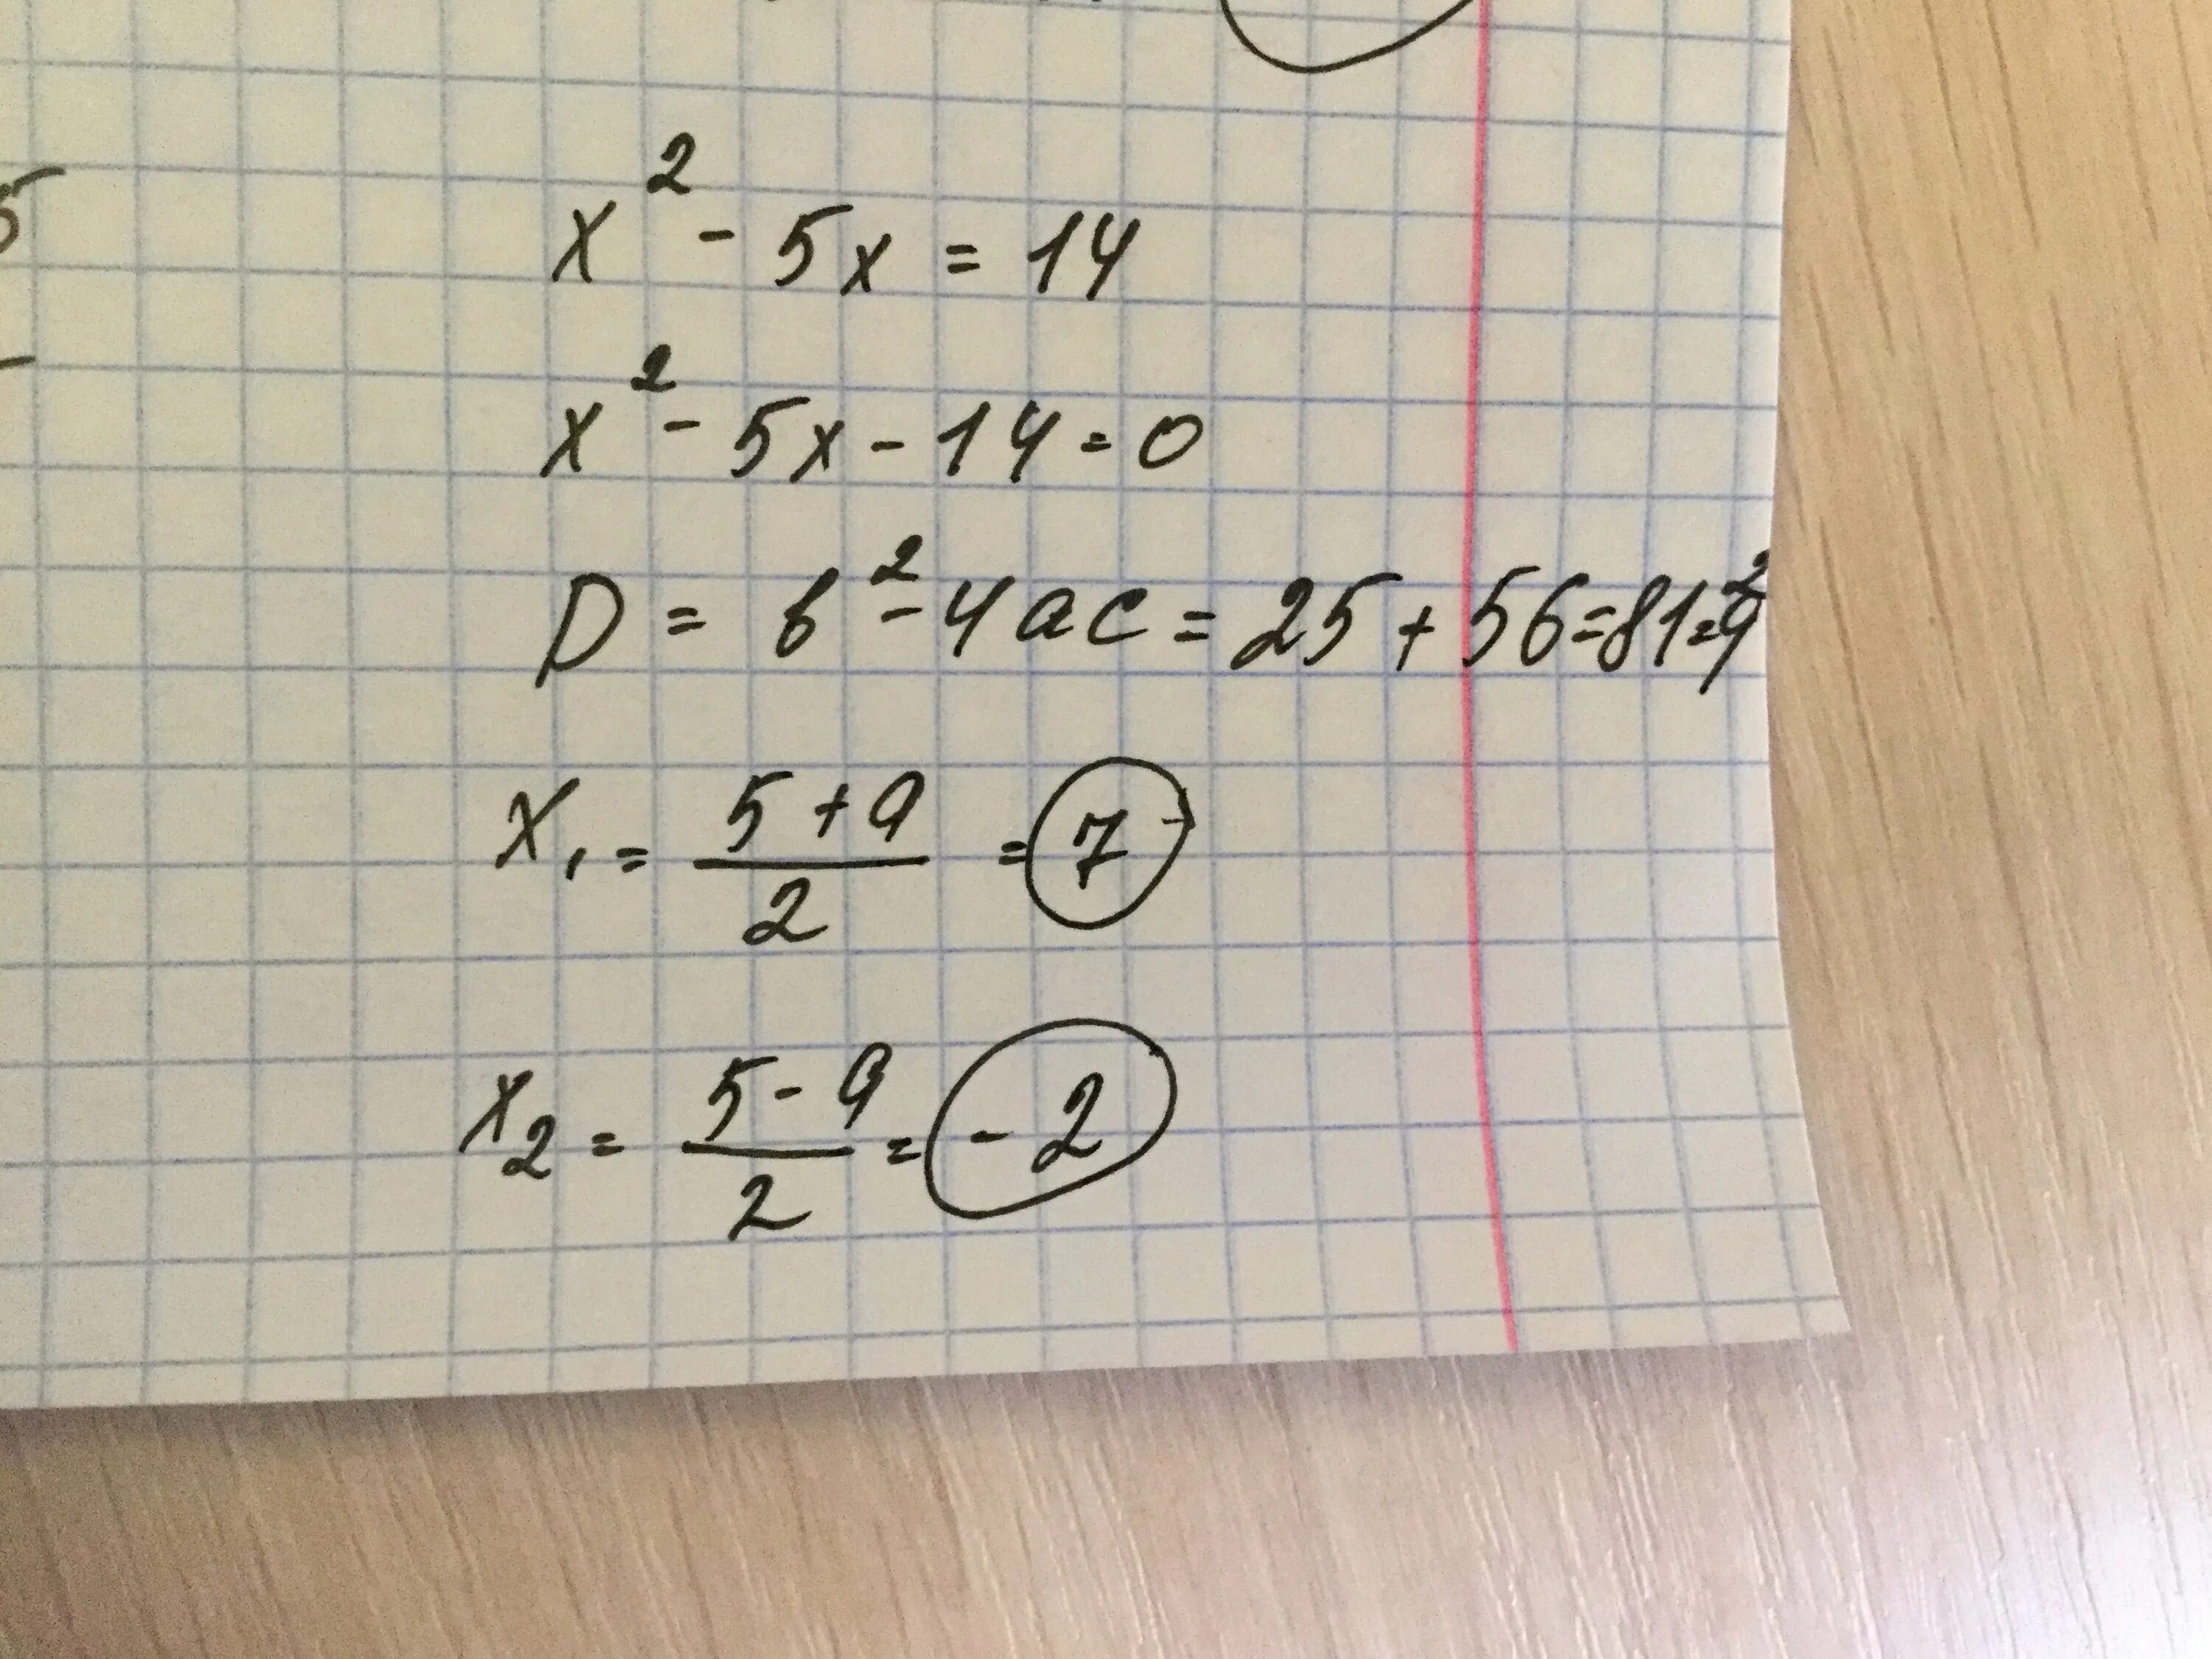 x² - 5x = 14
5
x² - 5x - 14 = 0
D = b² - 4ac = 25 + 56 = 81 = 9²
x₁ = (5 + 9)/2 = 7
x₂ = (5 - 9)/2 = -2